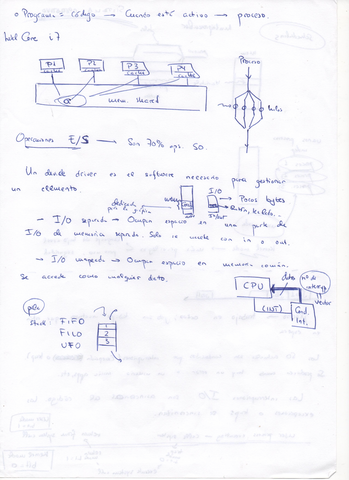 o Programa = Código → Cuando está activo → proceso.
Intel Core i7
P1 P2 P3 P4
cache cache cache cache
mem. shared
Proceso
hilos
Operaciones E/S → Son 70% ops. SO.
Un device driver es el software necesario para gestionar
un elemento.
I/O
→ Pocos bytes
→ Ratón, teclado...
- I/O separado → Ocupan espacio en una parte de
I/O de memoria separada. Solo se accede con in o out.
- I/O mapeado → Ocupan espacio en memoria común.
Se accede como cualquier dato.
CPU
datos
nº de
interrup.
vector
(INT)
Cont.
Int.
pila
Stack:
FIFO
FILO
LIFO
1
2
3